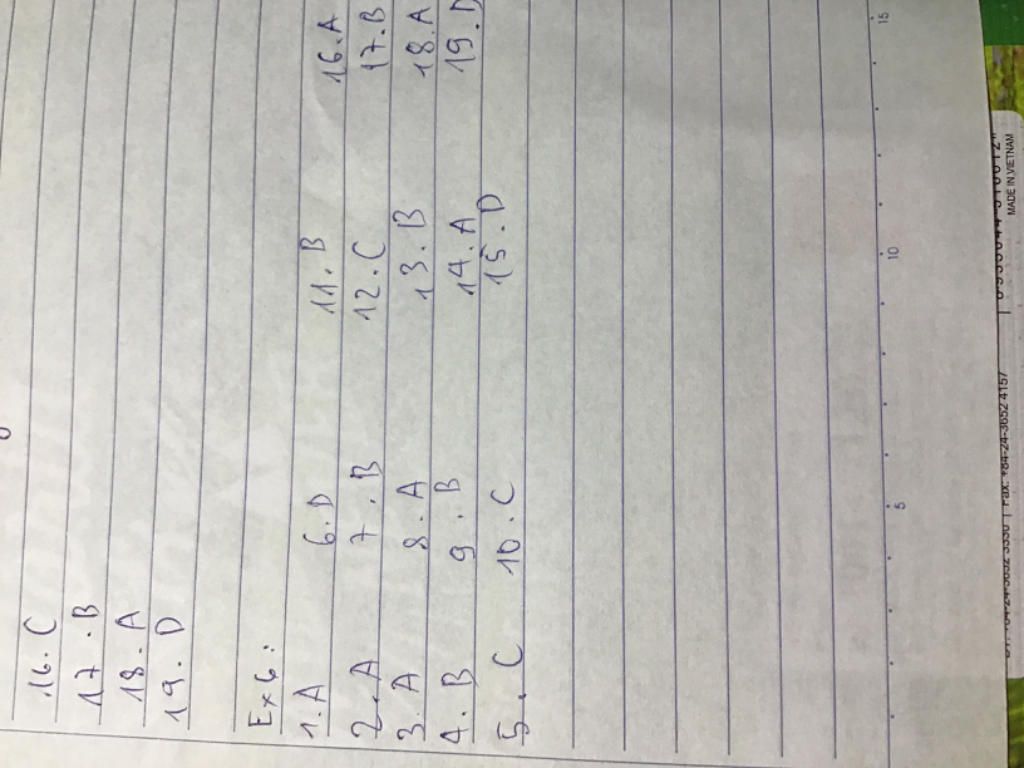 16. C
17. B
18. A
19. D
Ex 6:
1. A 6. D 11. B 16. A
2. A 7. B 12. C 17. B
3. A 8. A 13. B 18. A
4. B 9. B 14. A 19. D
5. C 10. C 15. D
5 10 15
MADE IN VIETNAM